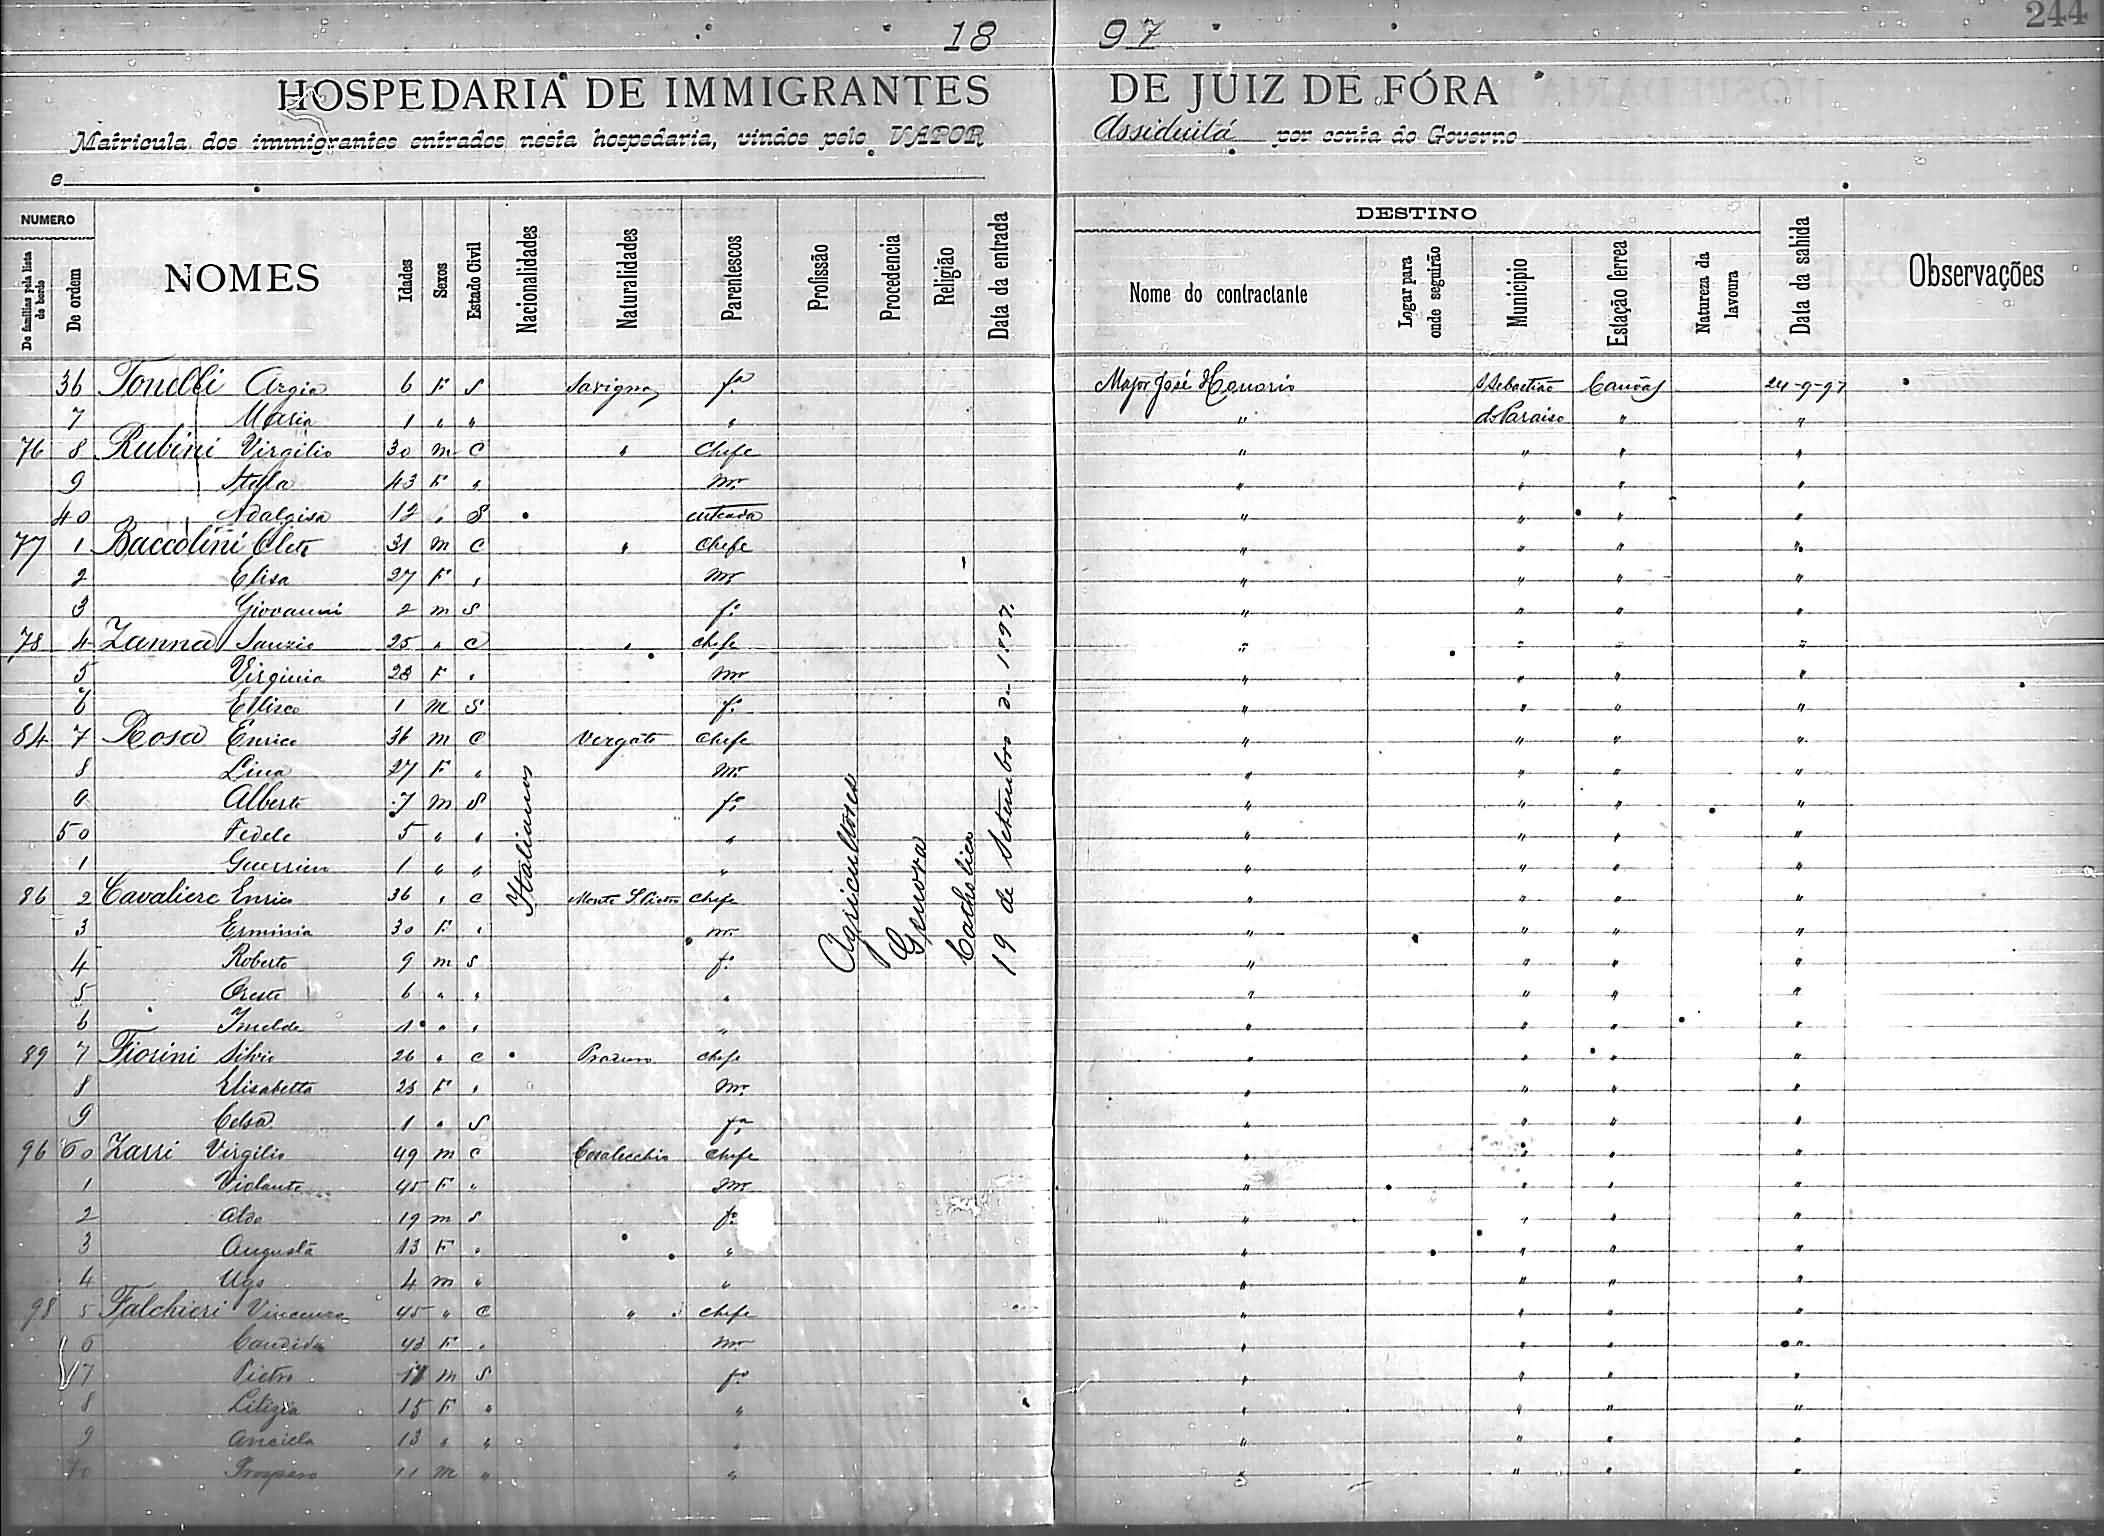 244
18 97
HOSPEDARIA DE IMMIGRANTES DE JUIZ DE FÓRA
Matricula dos immigrantes entrados nesta hospedaria, vindos pelo VAPOR Assiduitá por conta do Governo
e
NUMERO DESTINO
De familias pela lista de bordo De ordem NOMES Idades Sexos Estado Civil Nacionalidades Naturalidades Parentescos Profissão Procedencia Religião Data da entrada Nome do contractante Logar para onde seguirão Municipio Estação ferrea Natureza da lavoura Data da sahida Observações
36 Tonelli Argia 6 F S Savigno fª Major José Honorio S Sebastião Canôas 24-9-97
7 Maria 1 " " " " do Paraiso " "
76 8 Rubini Virgilio 30 m C " Chefe " " " "
9 Stella 43 F " mr " " " "
40 Adalgisa 12 " S enteada " " " "
77 1 Baccolini Cleto 31 m C " Chefe " " " "
2 Elisa 27 F " mr " " " "
3 Giovanni 2 m S fº " " " "
78 4 Zanna 25 " C " Chefe " " " "
5 Virginia 28 F " mr " " " "
6 Elliseo 1 m S fº " " " "
84 7 Rosa Enrico 36 m C Vergato Chefe " " " "
8 Lina 27 F " mr " " " "
9 Alberto 7 m S fº " " " "
50 Fedele 5 " " " " " " "
1 Guerrino 1 " " " " " " "
86 2 Cavaliere Enrico 36 " C Monte S. Pietro Chefe " " " "
3 Erminia 30 F " mr " " " "
4 Roberto 9 m S fº " " " "
5 Oreste 6 " " " " " " "
6 Imelde 1 " " " " " " "
89 7 Fiorini Silvio 26 " C Chefe " " " "
8 Elisabetta 23 F " mr " " " "
9 Celsa 1 " S fª " " " "
96 60 Zarri Virgilio 49 m C Casalecchio Chefe " " " "
1 Violante 45 F " mr " " " "
2 Aldo 19 m S fº " " " "
3 Augusta 13 F " " " " " "
4 Ugo 4 m " " " " " "
98 5 Falchieri Vincenzo 45 " C " Chefe " " " "
6 Candida 43 F " mr " " " "
7 Pietro m S fº " " " "
8 Letizia 15 F " " " " " "
9 13 " " " " " " "
70 Prospero 11 m " " " " " "
Italianos
Agricultores
Genova
Catholica
19 de Setembro de 1897.